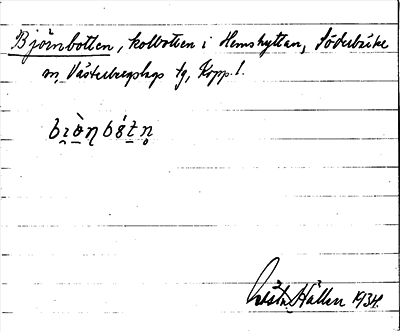 Björnbotten, kolbotten i Hemshyttan, Söderbärke
sn, Västerbergslags tg, Kopp. l.
Gösta Hallen 1934.